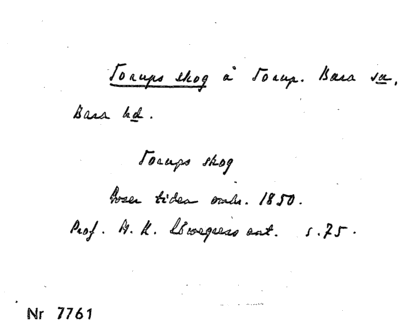 Torups skog å Torup. Bara sn,
Bara hd.
Torups skog
tiden omkr. 1850.
Prof. ant. s. 75.
Nr 7761